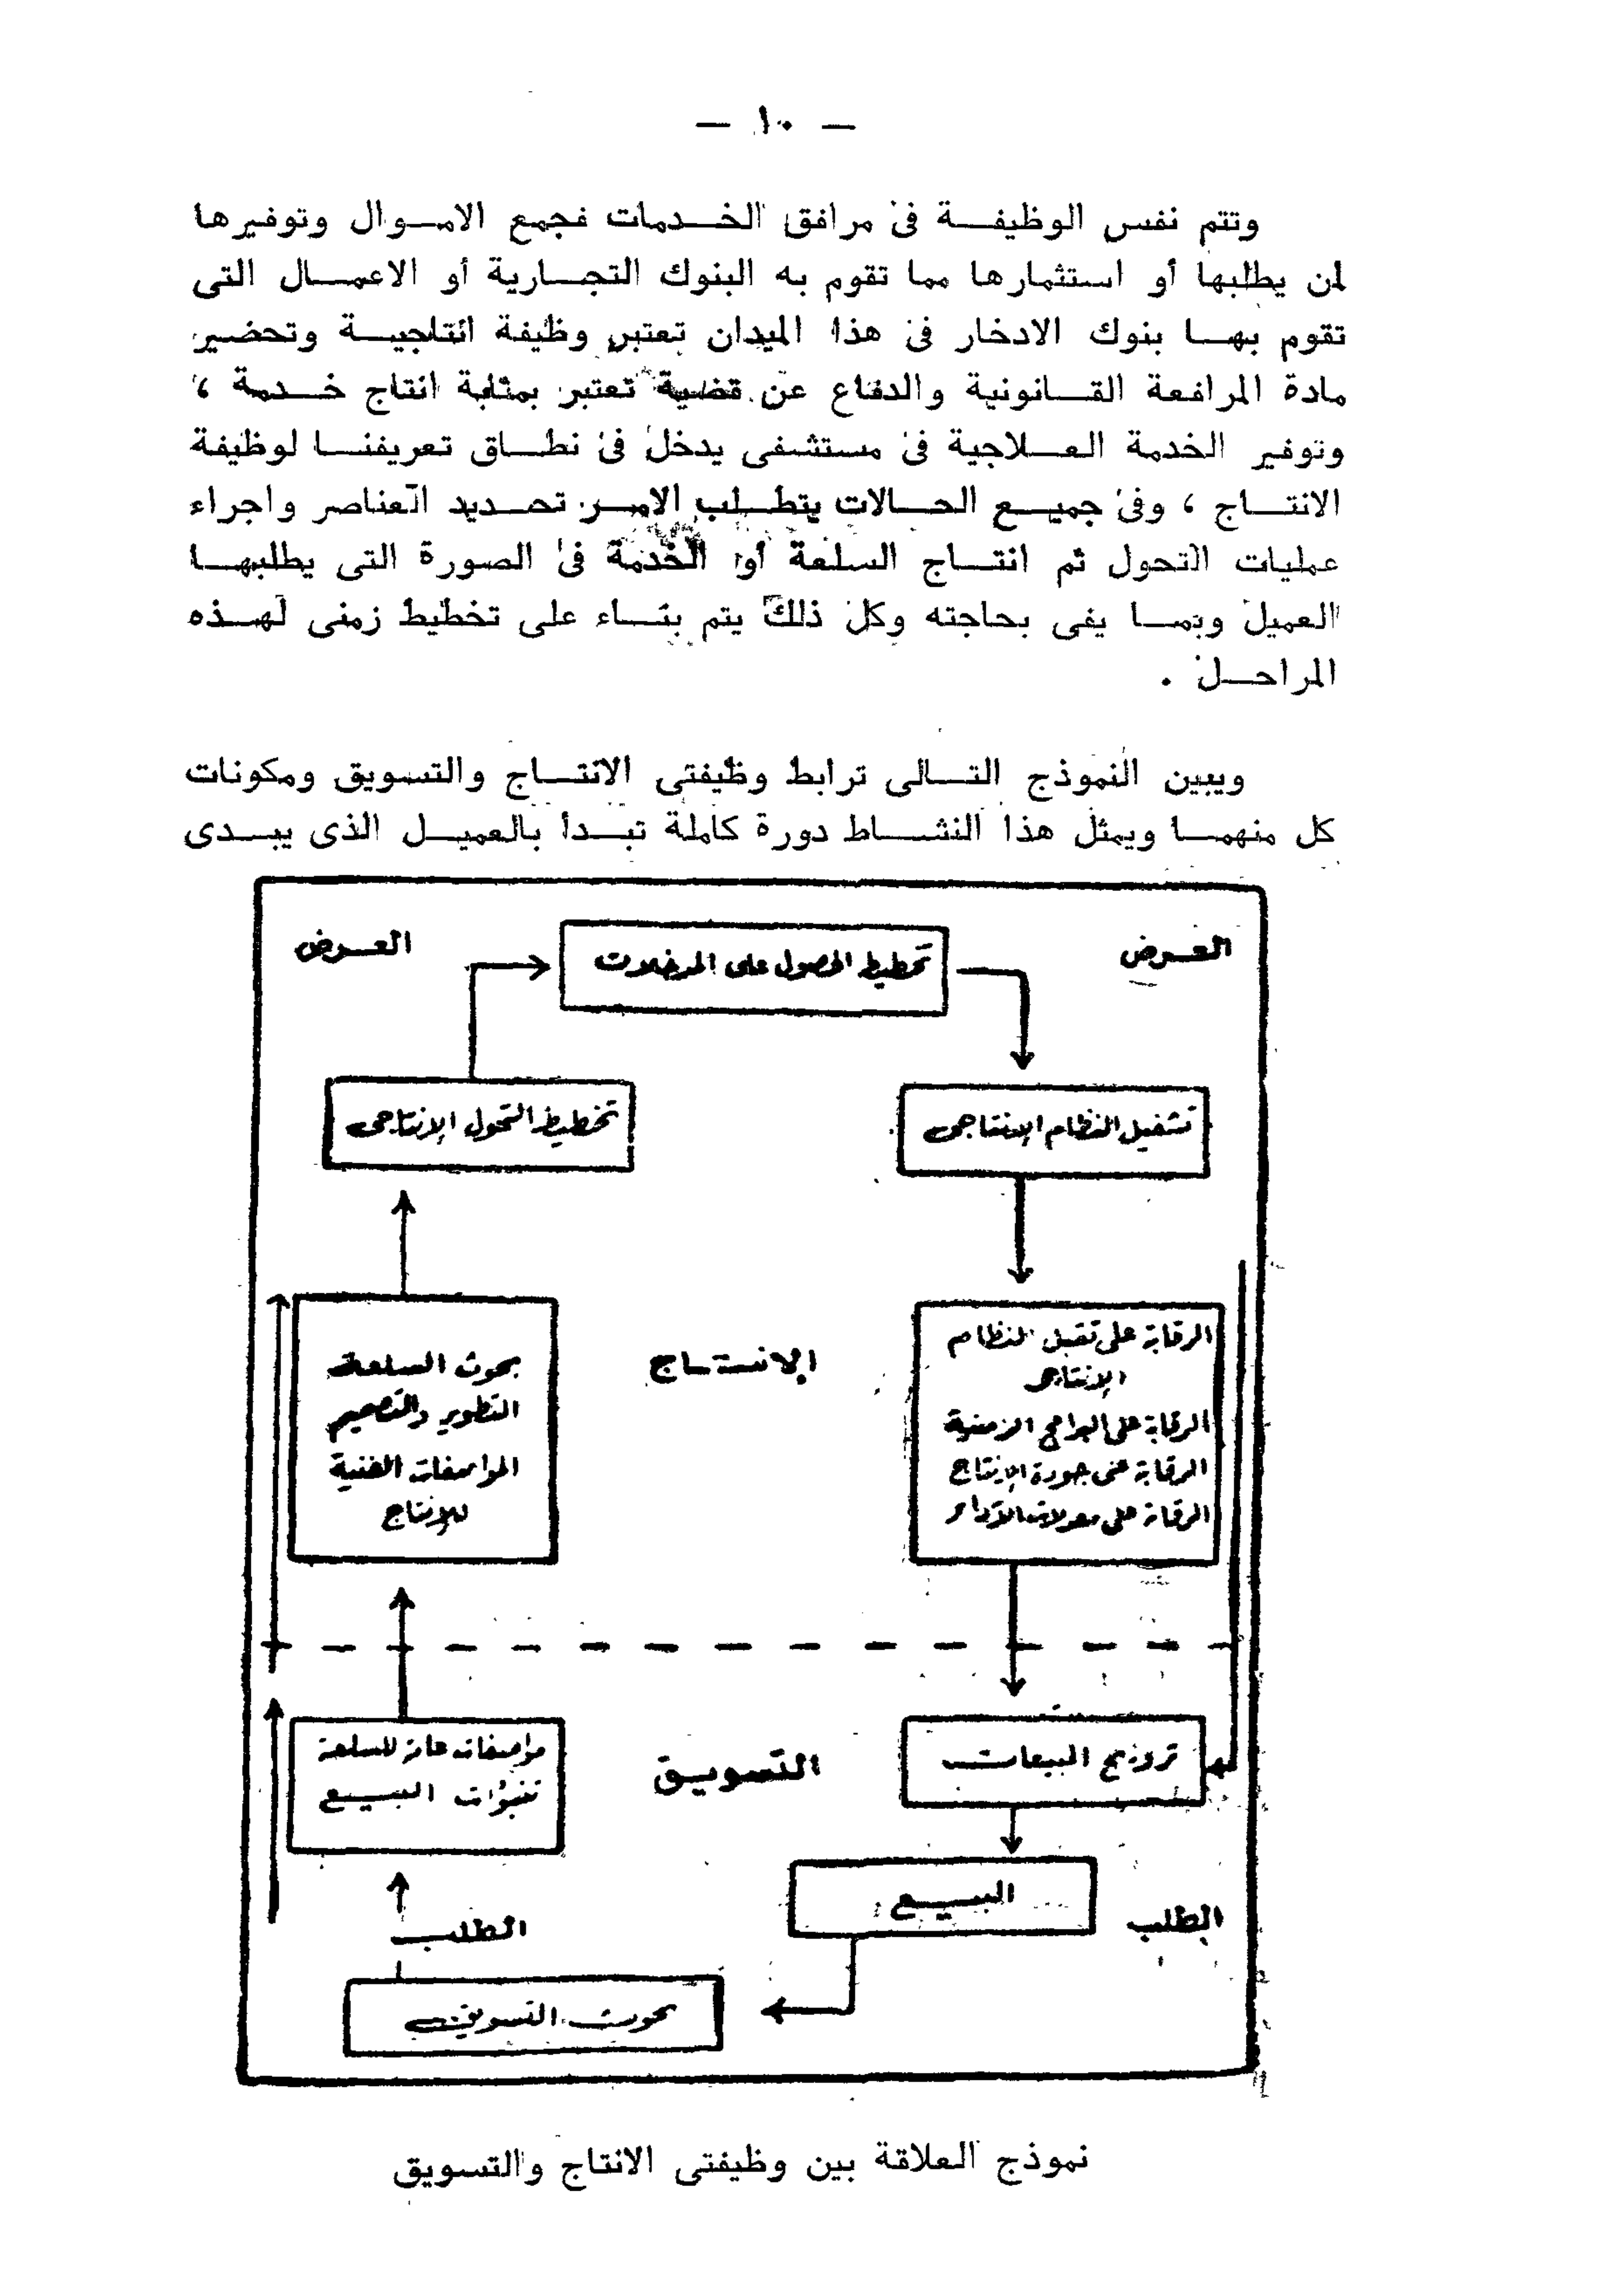 — ١٠ —
وتتم نفس الوظيفة فى مرافق الخدمات فجمع الاموال وتوفيرها
لمن يطلبها أو استثمارها مما تقوم به البنوك التجارية أو الاعمال التى
تقوم بها بنوك الادخار فى هذا الميدان تعتبر وظيفة انتاجية وتحضير
مادة المرافعة القانونية والدفاع عن قضية تعتبر بمثابة انتاج خدمة ،
وتوفير الخدمة العلاجية فى مستشفى يدخل فى نطاق تعريفنا لوظيفة
الانتاج ، وفى جميع الحالات يتطلب الامر تحديد العناصر واجراء
عمليات التحول ثم انتاج السلعة أو الخدمة فى الصورة التى يطلبها
العميل وبما يفى بحاجته وكل ذلك يتم بناء على تخطيط زمنى لهذه
المراحل .
ويبين النموذج التالى ترابط وظيفتى الانتاج والتسويق ومكونات
كل منهما ويمثل هذا النشاط دورة كاملة تبدأ بالعميل الذى يبدى
العرض
تخطيط الحصول على المدخلات
العرض
تشغيل النظام الإنتاجى
تخطيط التحول الإنتاجى
الرقابة على تشغيل النظام
الإنتاجى
الرقابة على البرامج الزمنية
الرقابة على جودة الإنتاج
الرقابة على معدلات الأداء
الإنتاج
بحوث السلعة
التطوير والتصميم
المواصفات الفنية
للإنتاج
ترويج المبيعات
التسويق
مواصفات عامة للسلعة
تنبؤات البيع
البيع
الطلب
الطلب
بحوث التسويق
نموذج العلاقة بين وظيفتى الانتاج والتسويق